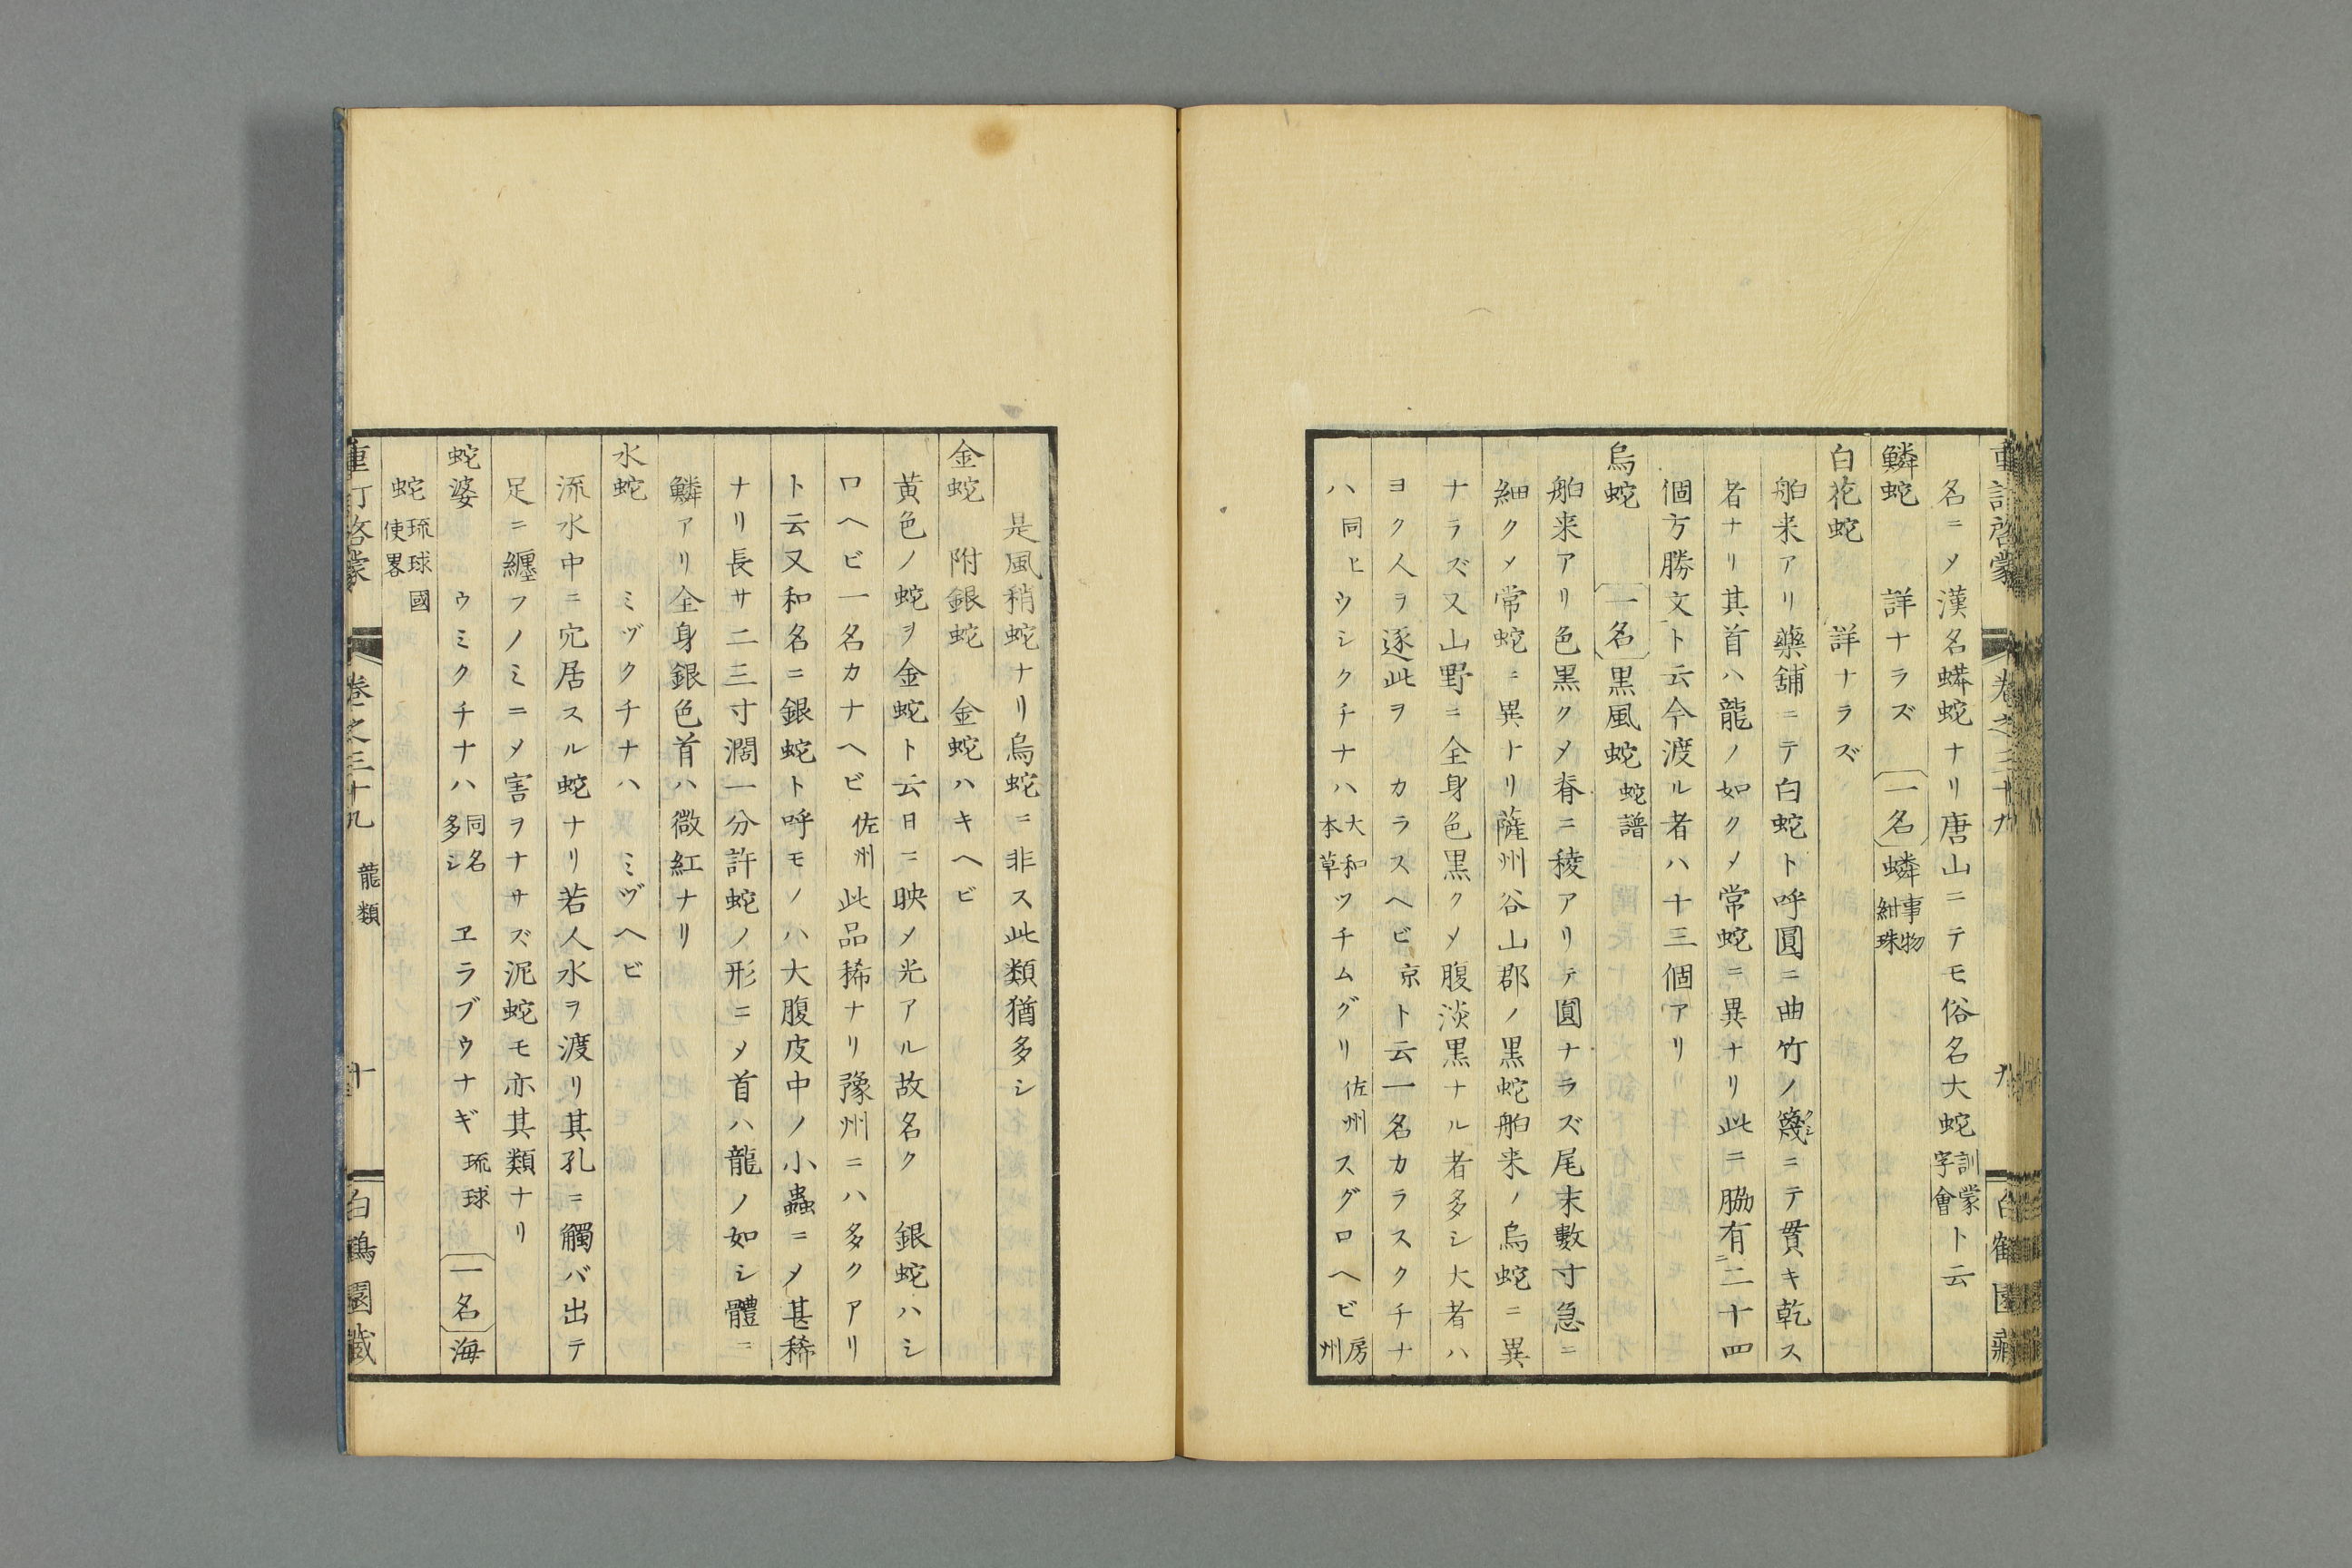 重訂啓蒙 卷之三十九 九 白鶴園藏
名ニメ漢名蟒蛇ナリ唐山ニテモ俗名大蛇訓蒙字會ト云
鱗蛇 詳ナラズ 一名 蟒事物紺珠
白花蛇 詳ナラズ
舶来アリ藥舗ニテ白蛇ト呼圓ニ曲竹ノ籤クシニテ貫キ乾ス
者ナリ其首ハ龍ノ如クメ常蛇ニ異ナリ此ニ脇有ニ二十四
個方勝文ト云今渡ル者ハ十三個アリ
烏蛇 一名 黒風蛇蛇譜
舶来アリ色黒クメ脊ニ稜アリテ圓ナラズ尾末數寸急ニ
細クメ常蛇ニ異ナリ薩州谷山郡ノ黒蛇舶来ノ烏蛇ニ異
ナラズ又山野ニ全身色黒クメ腹淡黒ナル者多シ大者ハ
ヨク人ヲ逐此ヲ カラスヘビ京ト云一名カラスクチナ
ハ同ヒウシクチナハ大和本草ツチムグリ佐州スグロヘビ房州
是風稍蛇ナリ烏蛇ニ非ス此類猶多シ
金蛇 附銀蛇 金蛇ハキヘビ
黄色ノ蛇ヲ金蛇ト云日ニ映メ光アル故名ク 銀蛇ハシ
ロヘビ一名カナヘビ佐州此品稀ナリ豫州ニハ多クアリ
ト云又和名ニ銀蛇ト呼モノハ大腹皮中ノ小蟲ニメ甚稀
ナリ長サ二三寸濶一分許蛇ノ形ニメ首ハ龍ノ如シ體ニ
鱗アリ全身銀色首ハ微紅ナリ
水蛇 ミヅクチナハ ミヅヘビ
流水中ニ穴居スル蛇ナリ若人水ヲ渡リ其孔ニ觸バ出テ
足ニ纏フノミニメ害ヲナサズ泥蛇モ亦其類ナリ
蛇婆 ウミクチナハ同名多シ ヱラブウナギ琉球 一名 海
蛇琉球國使畧
重訂啓蒙 卷之三十九 龍類 十 白鶴園藏